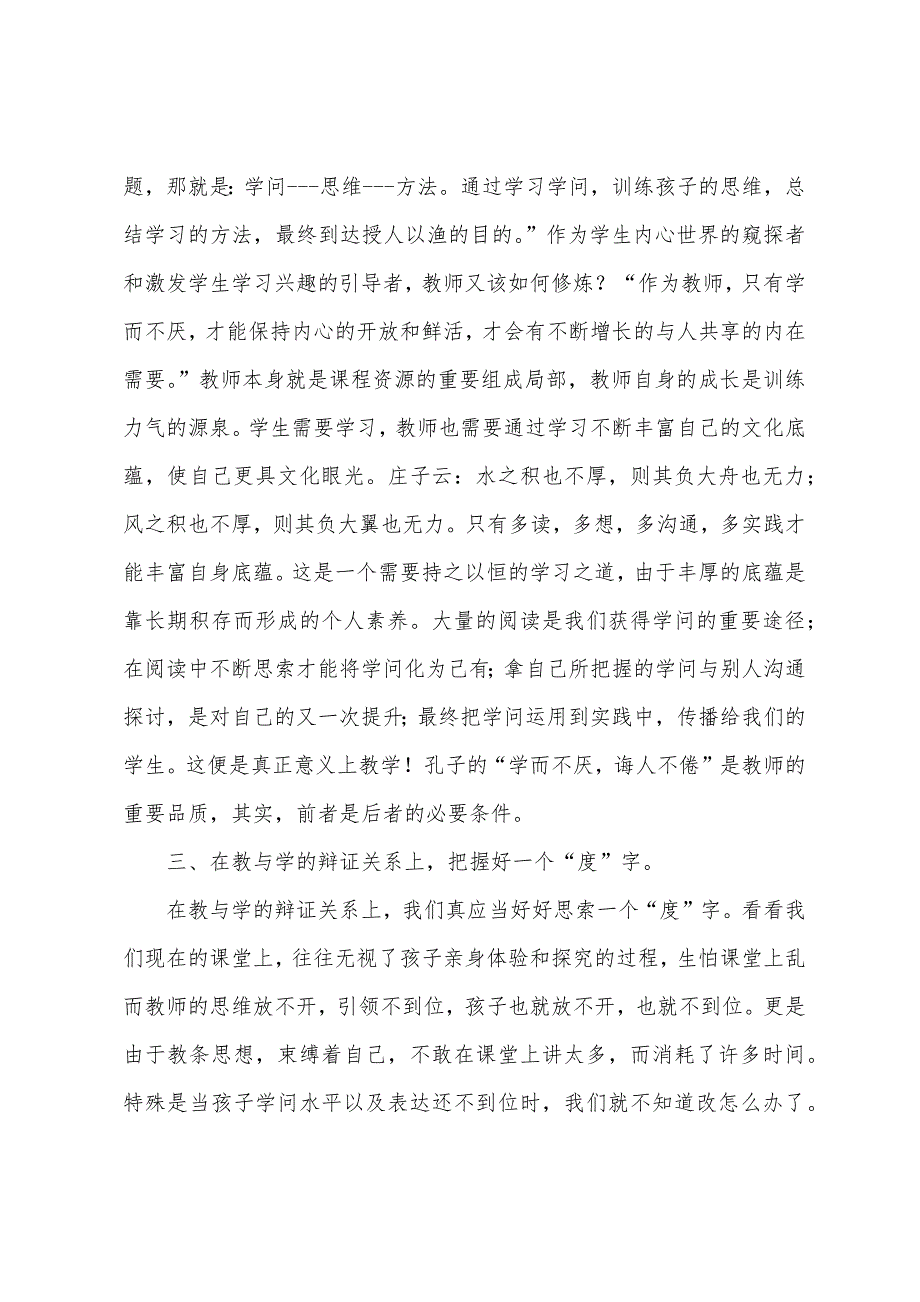 题，那就是：学问---思维---方法。通过学习学问，训练孩子的思维，总
结学习的方法，最终到达授人以渔的目的。”作为学生内心世界的窥探者
和激发学生学习兴趣的引导者，教师又该如何修炼？“作为教师，只有学
而不厌，才能保持内心的开放和鲜活，才会有不断增长的与人共享的内在
需要。”教师本身就是课程资源的重要组成局部，教师自身的成长是训练
力气的源泉。学生需要学习，教师也需要通过学习不断丰富自己的文化底
蕴，使自己更具文化眼光。庄子云：水之积也不厚，则其负大舟也无力；
风之积也不厚，则其负大翼也无力。只有多读，多想，多沟通，多实践才
能丰富自身底蕴。这是一个需要持之以恒的学习之道，由于丰厚的底蕴是
靠长期积存而形成的个人素养。大量的阅读是我们获得学问的重要途径；
在阅读中不断思索才能将学问化为己有；拿自己所把握的学问与别人沟通
探讨，是对自己的又一次提升；最终把学问运用到实践中，传播给我们的
学生。这便是真正意义上教学！孔子的“学而不厌，诲人不倦”是教师的
重要品质，其实，前者是后者的必要条件。
三、在教与学的辩证关系上，把握好一个“度”字。
在教与学的辩证关系上，我们真应当好好思索一个“度”字。看看我
们现在的课堂上，往往无视了孩子亲身体验和探究的过程，生怕课堂上乱
而教师的思维放不开，引领不到位，孩子也就放不开，也就不到位。更是
由于教条思想，束缚着自己，不敢在课堂上讲太多，而消耗了许多时间。
特殊是当孩子学问水平以及表达还不到位时，我们就不知道改怎么办了。